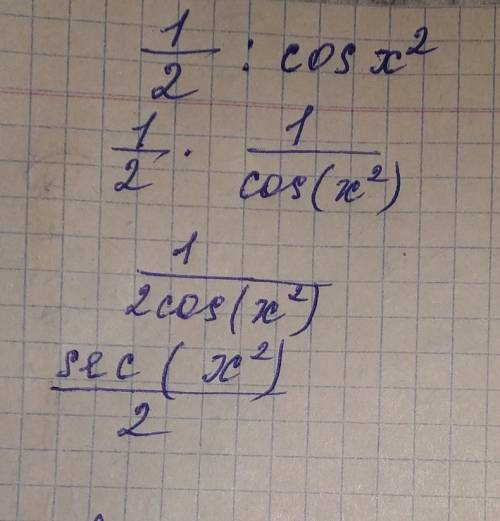 1/2 : cos x²
1/2 · 1/cos(x²)
1/2cos(x²)
sec(x²)/2